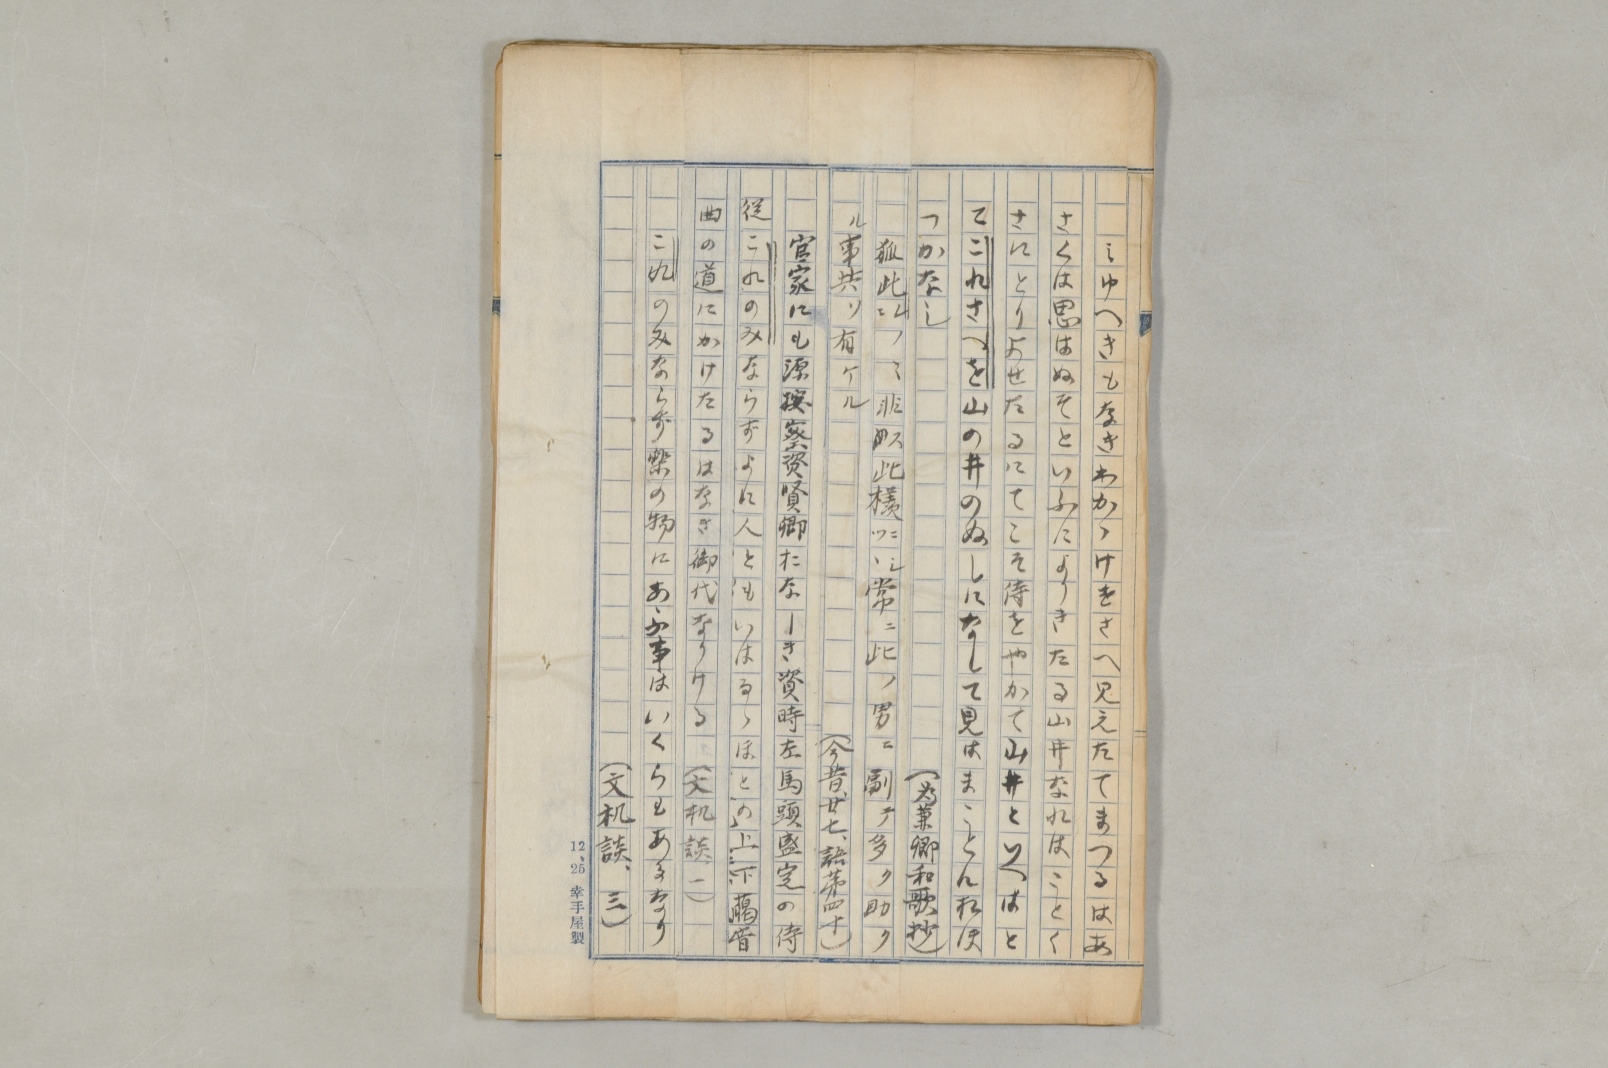 みゆへきもなきわかゝけをさへ見えたてまつるはあ
さくは思はぬそといふによりきたる山井なれはことく
さにとりよせたるにてこそ侍をやかて山井といへはと
てこれさへを山の井のぬしになして見はまことにおほ
つかなし
(為兼卿和歌抄)
狐此レノミ非ス此様ニシ常ニ此ノ男ニ副テ多ク助ク
ル事共ソ有ケル
(今昔、廿七、語第四十)
官家にも源按察資賢卿おなしき資時左馬頭盛定の侍
従これのみならずよに人ともいはるゝほとの上下﨟音
曲の道にかけたるはなき御代なりける
(文机談一)
これのみならず楽の物にあふ事はいくらもあるなり
(文机談、三)
12、25 幸手屋製